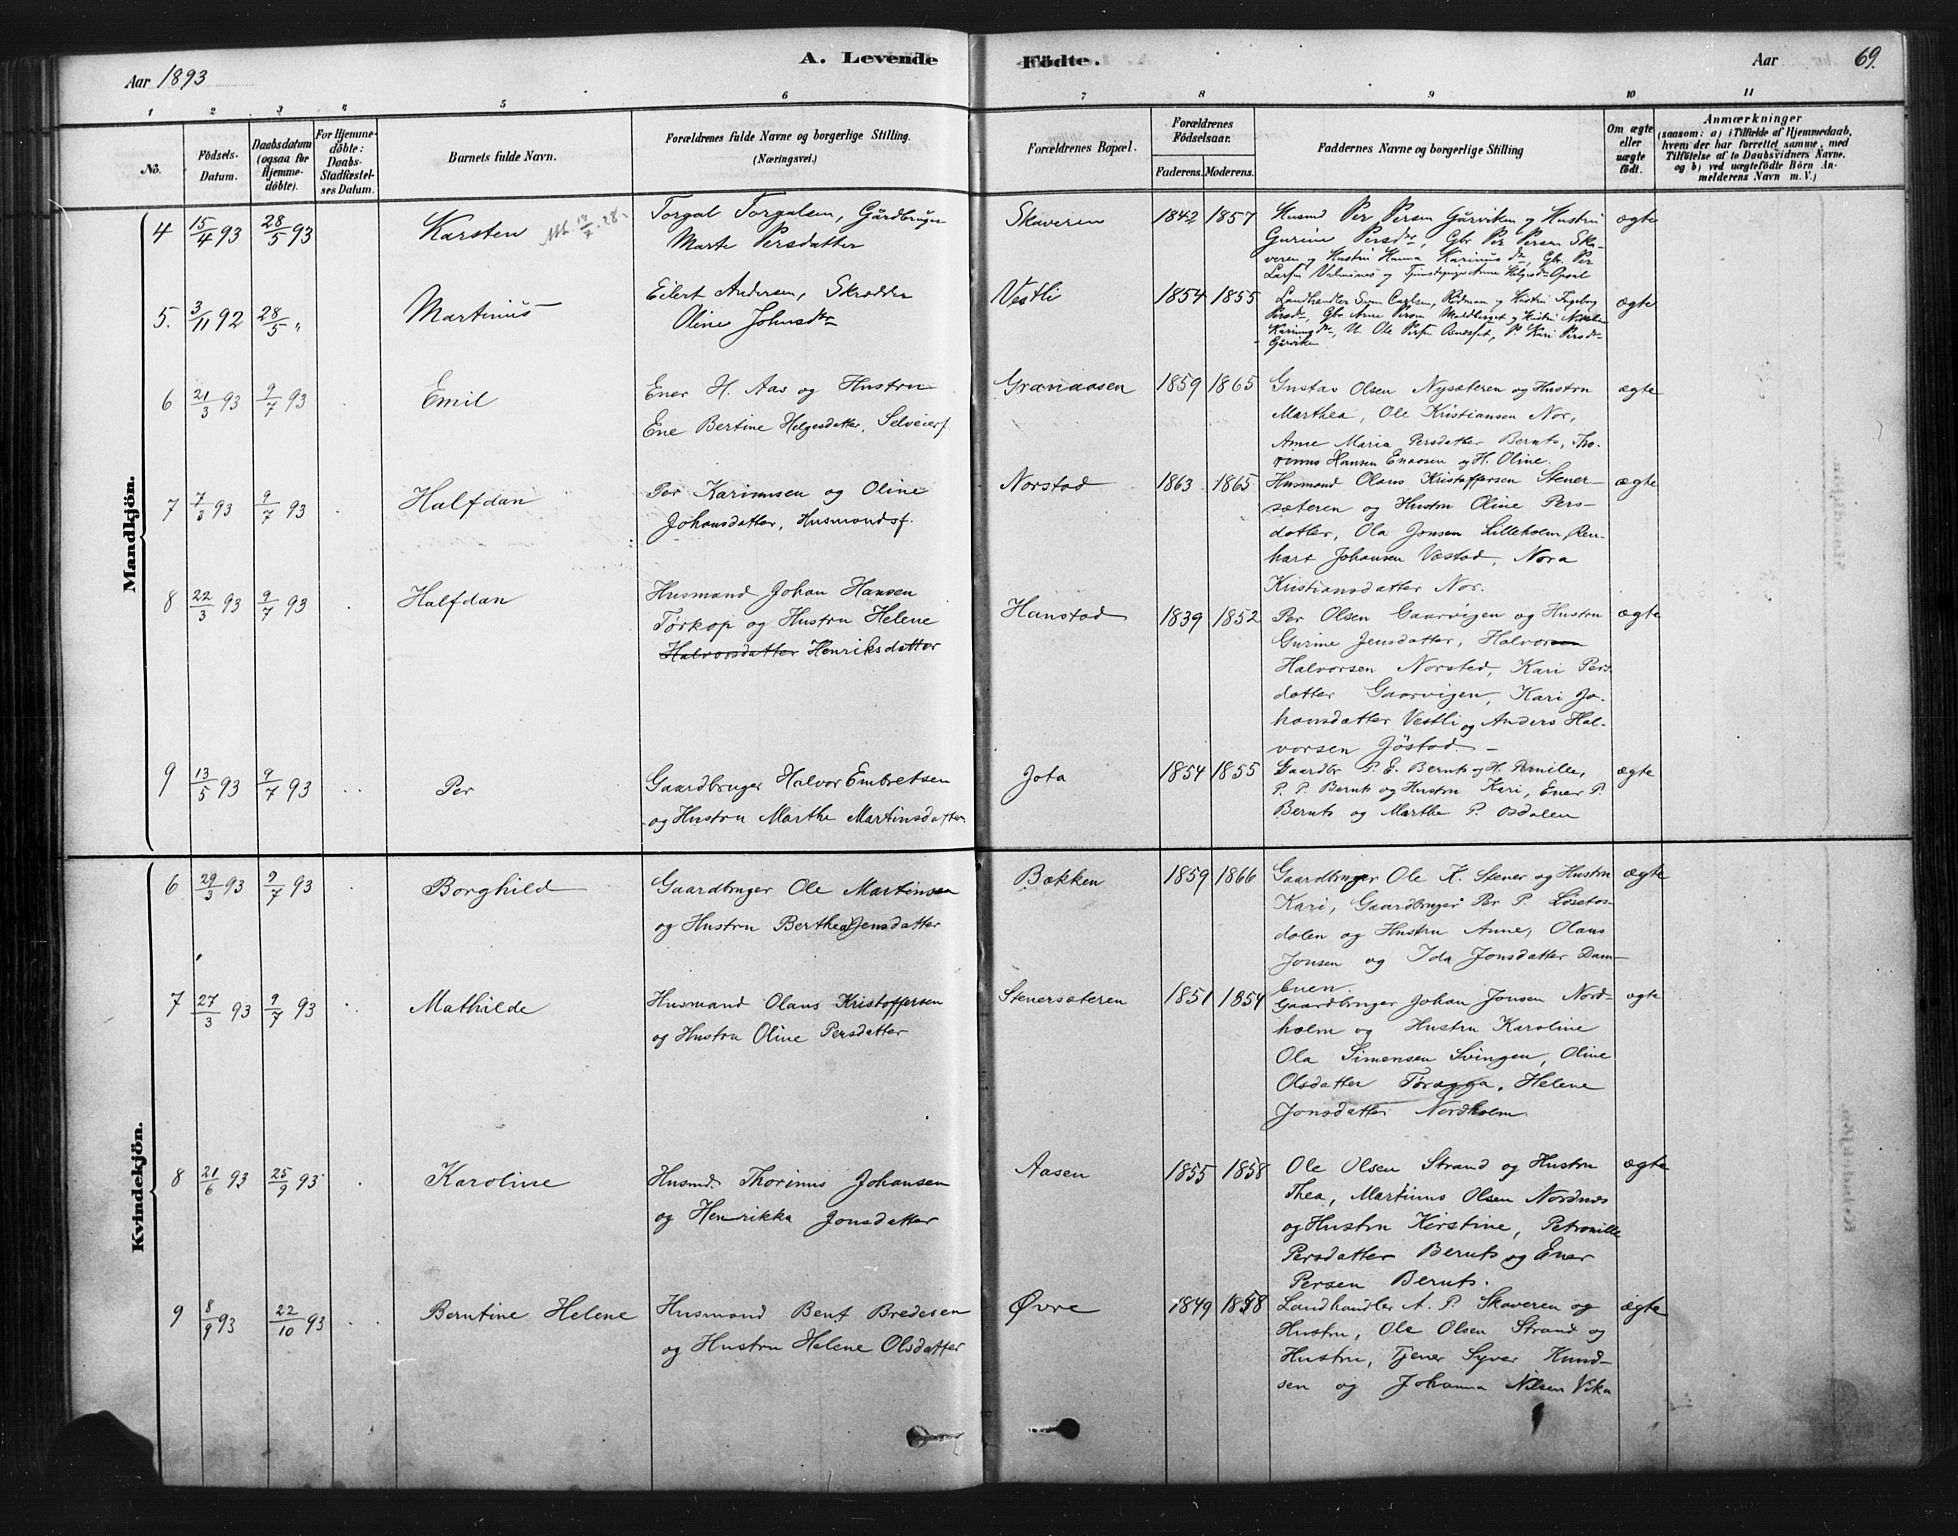 A. Levende Födte.
Aar 1893
Aar
69.
1 2 3 4 5 6 7 8 9 10 11
No.
Födsels-Datum.
Daabsdatum (ogsaa for Hjemmedöbte).
For Hjemmedöbte: Daabs-Stadfæstelses Datum.
Barnets fulde Navn.
Forældrenes fulde Navne og borgerlige Stilling. (Næringsvei.)
Forældrenes Bopæl.
Forældrenes Födselsaar.
Faderens. Moderens.
Faddernes Navne og borgerlige Stilling
Om ægte eller uægte födt.
Anmærkninger
(saasom: a) i Tilfælde af Hjemmedaab, hvem der har forrettet samme, med Tilföielse af to Daabsvidners Navne, og b) ved uægtefödte Börn Anmelderens Navn m. V.)
Mandkjön.
4 15/4 93 28/5 93 Karsten
Torgal Torgalsen, Gårdbruger
Marte Persdatter
Skaveren 1842 1857
Husmd Per Persen Gårviken og Hustru
Gurine Persdtr, Gbr Per Persen Ska-
veren og Hustru Hanna Karinusdtr, Gbr. Per
ægte
5. 3/11 92 28/5 " Martinus
Eilert Andersen, Skrædder
Oline Johnsdtr
Vestli 1854 1855
Landhandler Carlsen, og Hustru Ingeborg
Persdtr, Gbr Arne Persen og Hustru
U. Ole Persen, P. Kari Persdtr
Gårviken
ægte
6 21/3 93 9/7 93 Emil
Ener H. Aas og Hustru
Ene Bertine Helgesdatter, Selveierf.
Granaasen 1859 1865
Gustav Olsen Nysæteren og Hustru
Marthea, Ole Kristiansen Nor,
Anne Maria Persdatter Bernts, Tho-
rinus Hansen Enaasen og H. Oline.
ægte
7 7/3 93 9/7 93 Halfdan
Per Karinusen og Oline
Johansdatter, Husmandsf.
Norstad 1863 1865
Husmand Olaus Kristoffersen Stener-
sæteren og Hustru Oline Pers-
datter, Ola Jonsen Lilleholm, Ren-
hart Johansen Væstad, Nora
Kristiansdatter Nor.
ægte
8 22/3 93 9/7 93 Halfdan
Husmand Johan Hansen
Törkop og Hustru Helene
Halvorsdatter Henriksdatter
Hanstad 1839 1852
Per Olsen Gaarvigen og Hustru
Gurine Jensdatter, Halvor
Halvorsen Norstad, Kari Pers-
datter Gaarvigen, Kari Jo-
hansdatter Vestli og Anders Hal-
vorsen Jöstad. –
ægte
9 13/5 93 9/7 93 Per
Gaardbruger Halvor Embretsen
og Hustru Marthe Martinsdatter
Jota 1854 1855
Gaardbr P. E. Bernts og H. Pernille,
P. P. Bernts og Hustru Kari, Ener P.
Bernts og Marthe P. Osdalen
ægte
Kvindekjön.
6 29/3 93 9/7 93 Borghild
Gaardbruger Ole Martinsen
og Hustru Berthea Jensdatter
Bækken 1859 1866
Gaardbruger Ole K. Stener og Hustru
Kari, Gaardbruger Per P. Lösetos-
dalen og Hustru Anne, Olaus
Jonsen og Ida Jonsdatter Dam-
Enen.
ægte
7 27/3 93 9/7 93 Mathilde
Husmand Olaus Kristoffersen
og Hustru Oline Persdatter
Stenersæteren 1851 1854
Gaardbruger Johan Jonsen Nord-
holm og Hustru Karoline
Ola Simensen Svingen, Oline
Olsdatter Töraasa, Helene
Jonsdatter Nordholm.
ægte
8 21/6 93 25/9 93 Karoline
Husmd. Thorinus Johansen
og Henrikka Jonsdatter
Aasen 1855 1858
Ole Olsen Strand og Hustru
Thea, Martinus Olsen Nordnæs
og Hustru Kirstine, Petronille
Persdatter Bernts og Ener
Persen Bernts.
ægte
9 8/9 93 22/10 93 Berntine Helene
Husmand Bent Bredesen
og Hustru Helene Olsdatter
Övre 1849 1858
Landhandler A. P. Skaveren og
Hustru, Ole Olsen Strand og
Hustru, Tjener Syver Knud-
sen og Johanna Nilsen Vika
ægte